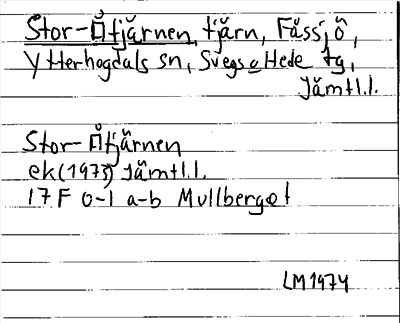 Stor-Åtjärnen, tjärn, Fåssjö,
Ytterhogdals sn, Svegs o Hede tg,
Jämtl.l.
Stor-Åtjärnen
ek(1973) Jämtl.l.
17 F 0-1 a-b Mullberget
LM 1974